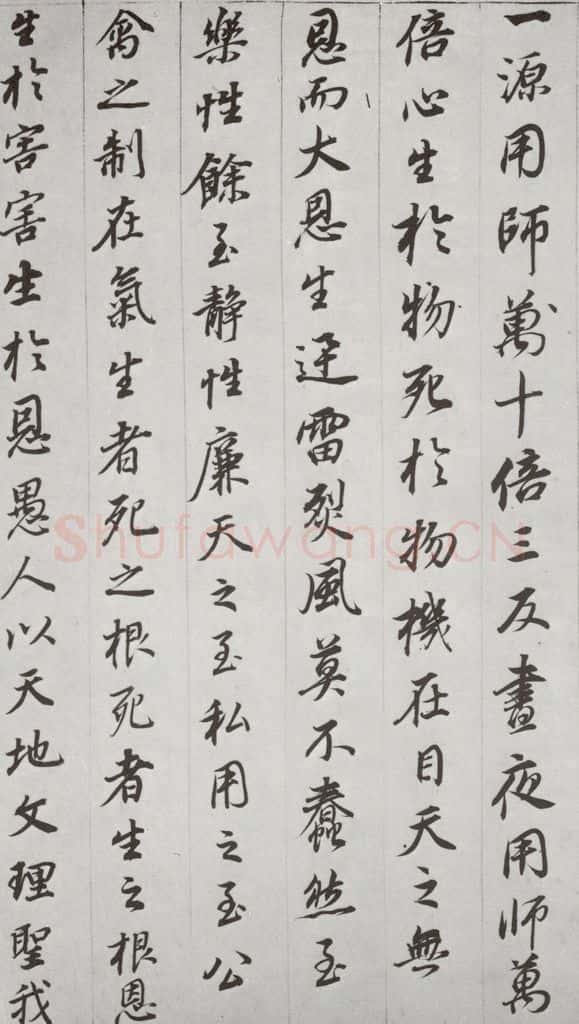 一源用師萬十倍三反晝夜用師萬
倍心生於物死於物機在目天之無
恩而大恩生迅雷烈風莫不蠢然至
樂性餘至靜性廉天之至私用之至公
禽之制在氣生者死之根死者生之根恩
生於害害生於恩愚人以天地文理聖我
Shufawang.CN